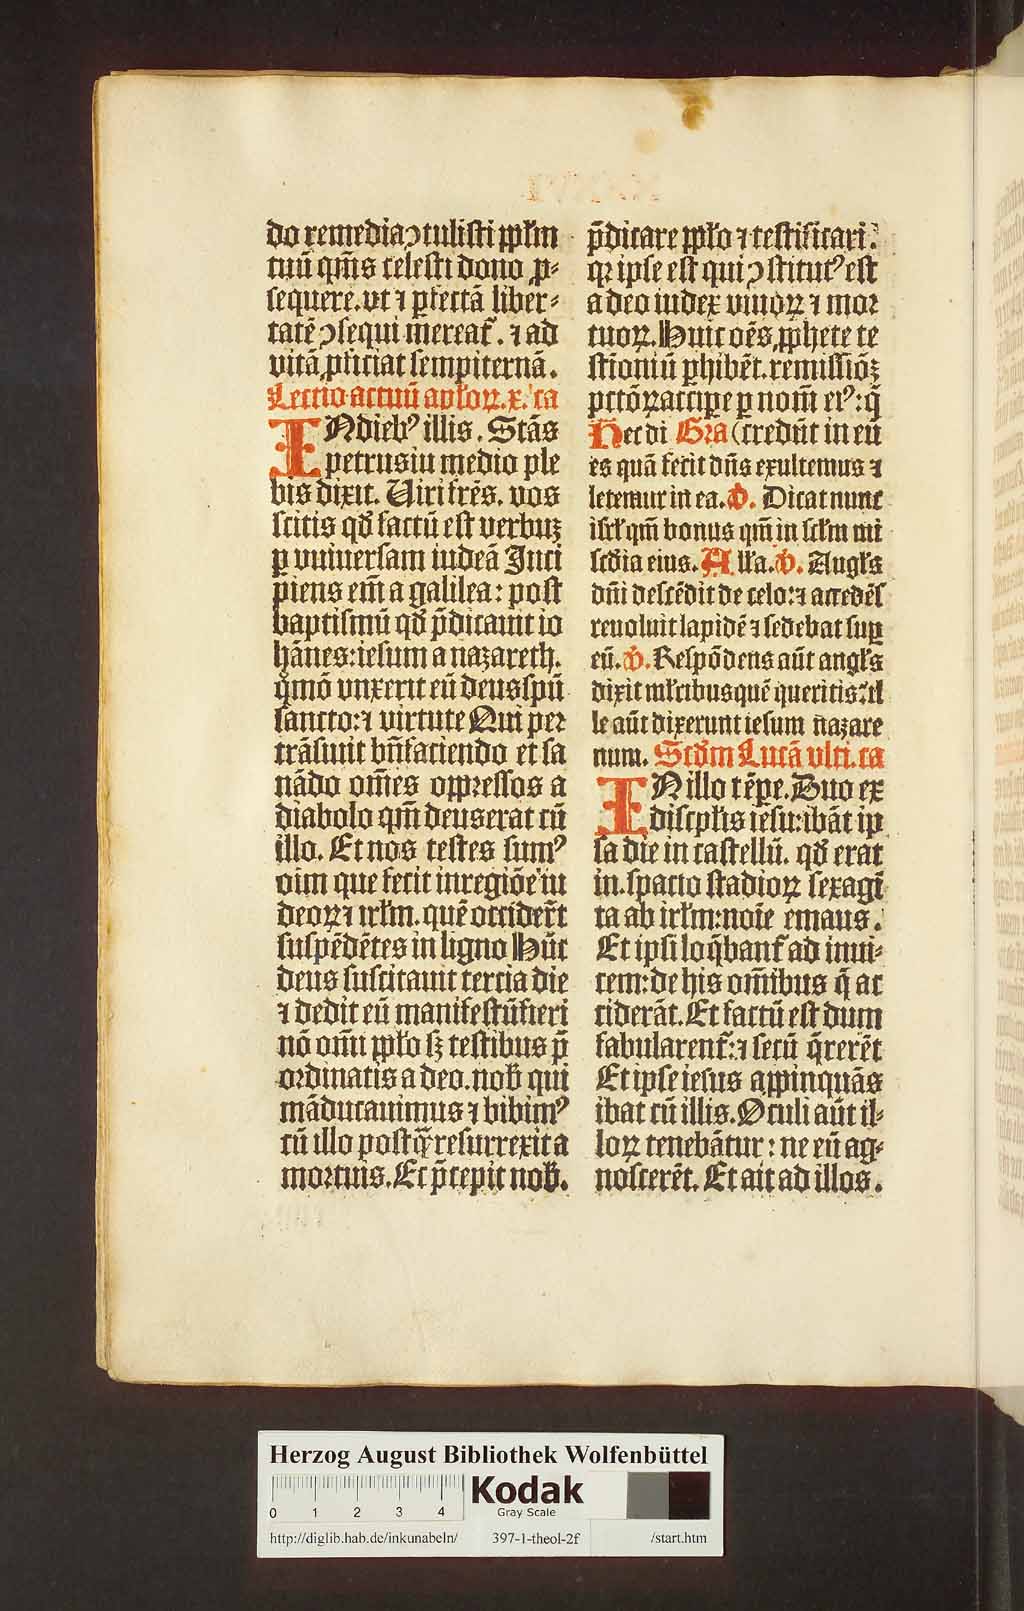 do remedia ꝯtulisti pp̄lm
tuū qm̄s celesti dono ꝓ-
sequere. vt ⁊ ꝑfectā liber-
tatē ꝯsequi mereat᷑. ⁊ ad
vitā ꝓficiat sempiternā.
Lectio actuū apl'oꝝ. x. ca
IN dieb⁹ illis. Stās
petrus in medio ple
bis dixit. Uiri fr̄es. vos
scitis qđ factū est verbuꝫ
ꝑ vniuersam iudeā Inci
piens em̄ a galilea: post
baptismū qđ p̄dicauit io
hānes: iesum a nazareth.
qōmō vnxerit eū deus spū
sancto: ⁊ virtute Qui per
trāsiuit bn̄faciendo et sa
nādo om̄es oppressos a
diabolo qm̄ deus erat cū
illo. Et nos testes sum⁹
oīm que fecit in regiōe iu
deoꝝ ⁊ irl'm. quē occider̄t
suspēdētes in ligno Hūc
deus suscitauit tercia die
⁊ dedit eū manifestū fieri
nō om̄i pp̄lo sꝫ testibus p̄
ordinatis a deo. nob̄ qui
māducauimus ⁊ bibim⁹
cū illo postq̄ꝫ resurrexit a
mortuis. Et p̄cepit nob̄.
p̄dicare pp̄lo ⁊ testificari:
qꝛ ipse est qui ꝯstitut⁹ est
a deo iudex viuoꝝ ⁊ mor
tuoꝝ. Huic oēs ꝓphete te
stioniū ꝑhibēt. remissiōꝫ
pctōꝝ accipe ꝑ nom̄ ei⁹: q̄
Hec di Gra (credūt in eū
es quā fecit dn̄s exultemus ⁊
letemur in ea. V. Dicat nunc
isrl' qm̄ bonus qm̄ in scl'm mi
scđia eius. All'a. V. Angl's
dn̄i descēdit de celo: ⁊ accedēs
reuoluit lapidē ⁊ sedebat suꝑ
eū. V. Respōdens aūt angl's
dixit ml'ribus quē queritis: il
le aūt dixerunt iesum nazare
num. Scđm Lucā vlti. ca
IN illo tēpe. Duo ex
discpl'is iesu: ibāt ip
sa die in castellū. qđ erat
in spacio stadioꝝ sexagī
ta ab irl'm: noīe emaus.
Et ipsi loq̄bant᷑ ad inui-
cem: de his om̄ibus q̄ ac
ciderāt. Et factū est dum
fabularent᷑: ⁊ secū q̄rerēt
Et ipse iesus appinquās
ibat cū illis. Oculi aūt il-
loꝝ tenebātur: ne eū ag-
noscerēt. Et ait ad illos.
Herzog August Bibliothek Wolfenbüttel
0 1 2 3 4
Kodak
Gray Scale
http://diglib.hab.de/inkunabeln/ 397-1-theol-2f /start.htm